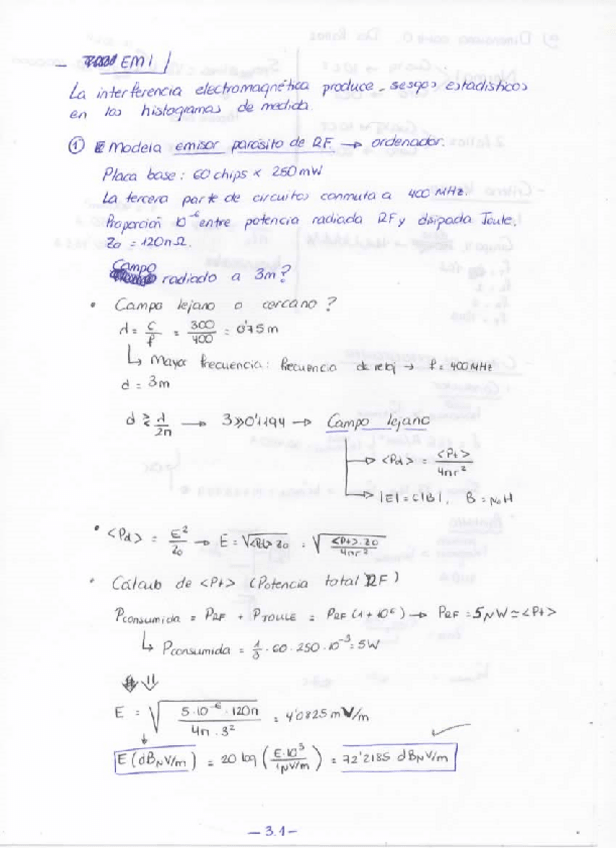 - EMI
La interferencia electromagnética produce sesgos estadísticos
en los histogramas de medida.
① Modela emisor parásito de RF → ordenador.
Placa base: 60 chips x 250 mW
La tercera parte de circuitos conmuta a 400 MHz.
Proporción 10⁻⁶ entre potencia radiada RF y disipada Joule.
Z₀ = 120π Ω.
Campo radiado a 3m?
• Campo lejano o cercano?
λ = c/f = 300/400 = 0'75 m
↳ Mayor frecuencia: frecuencia de reloj → f = 400 MHz
d = 3m
d ≷ λ/2π → 3 >> 0'1194 → Campo lejano
→ <Pd> = <Pt>/4πr²
→ |E| = c|B|, B = μ₀H
• <Pd> = E²/Z₀ → E = √<Pd>·Z₀ = √(<Pt>·Z₀/4πr²)
• Cálculo de <Pt> (Potencia total RF)
Pconsumida = PRF + PJOULE = PRF (1+10⁶) → PRF = 5μW ≃ <Pt>
↳ Pconsumida = 1/3 · 60 · 250 · 10⁻³ = 5W
⇓
E = √(5·10⁻⁶ · 120π / 4π · 3²) = 4'0825 mV/m
E (dBμV/m) = 20 log (E·10³ / 1μV/m) = 72'2185 dBμV/m
- 3.1 -